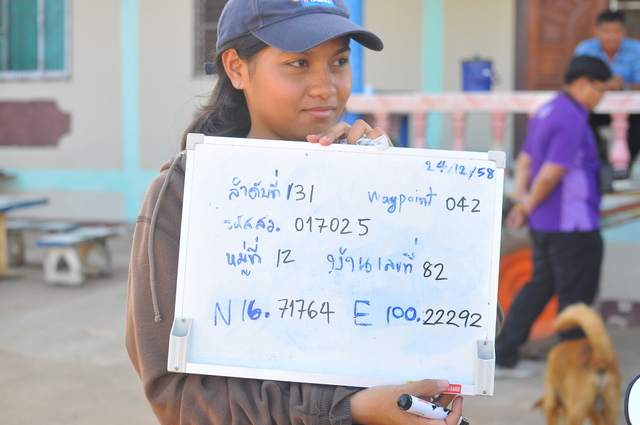 24/12/58
ลำดับที่ 131 Waypoint 042
รหัสสว. 017025
หมู่ที่ 12 บ้านเลขที่ 82
N 16.71764 E 100.22292